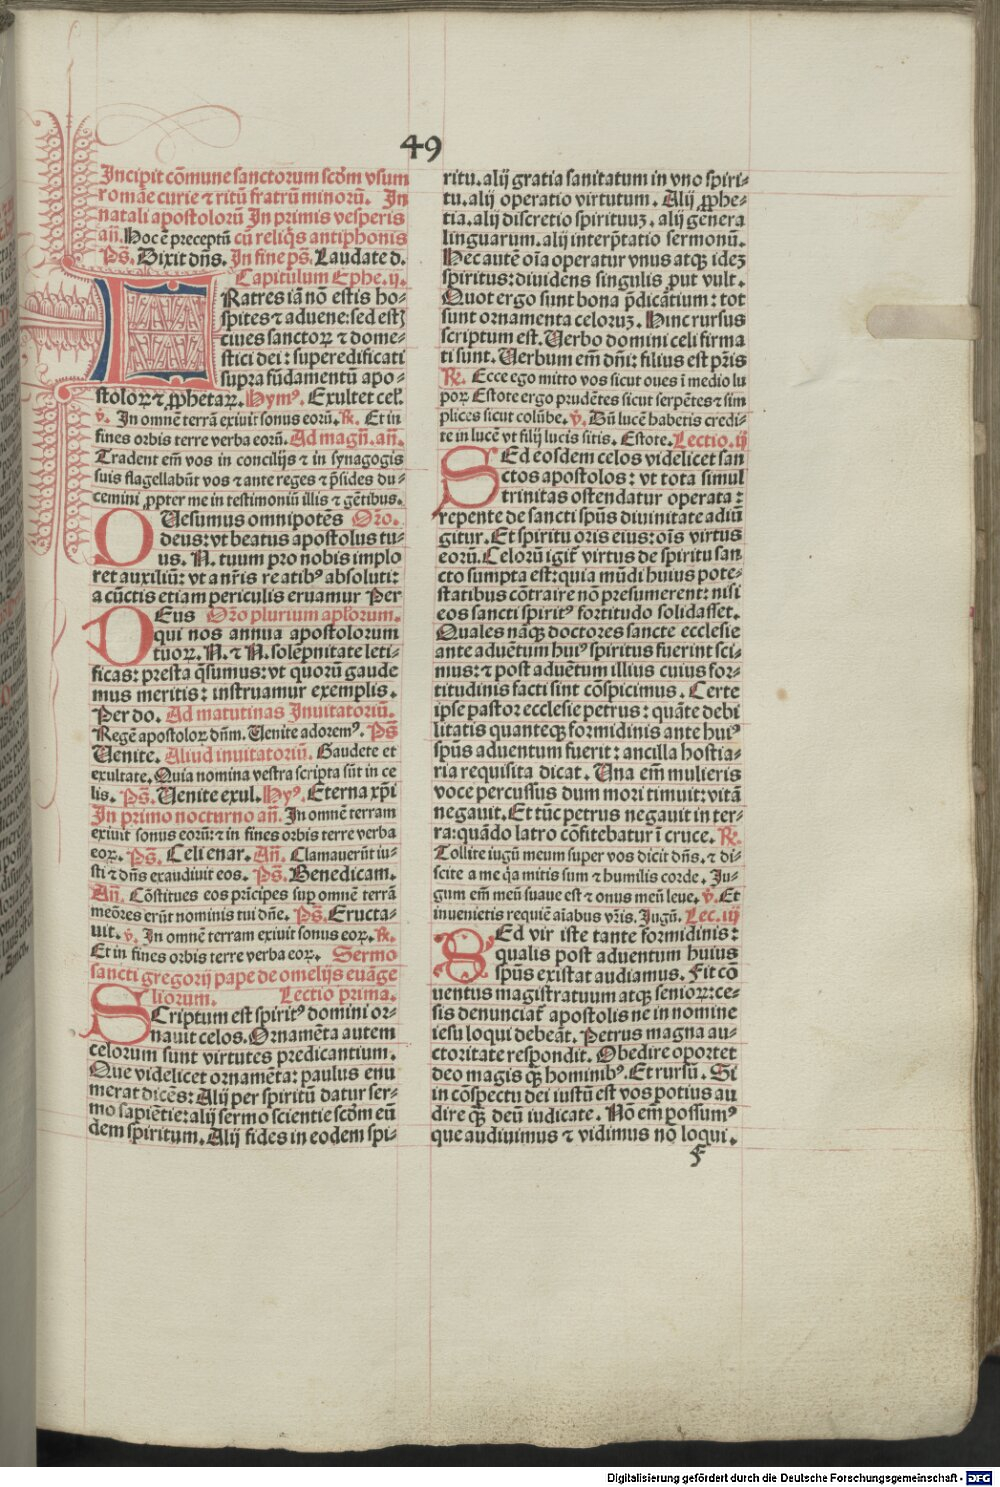 49
Incipit cōmune sanctorum scd̄m vsum
romāe curie ⁊ ritū fratrū minorū. In
natali apostolorū In primis vesperis
añ. Hoc ē preceptū cū reliq̄s antiphonis
Ps̄. Dixit dñs. In fine ps̄. Laudate d.
Capitulum Ephe. ij.
FRatres iā nō estis ho-
spites ⁊ aduene: sed estꝭ
ciues sanctoꝝ ⁊ dome-
stici dei: superedificati
supra fūdamentū apo-
stoloꝝ ⁊ ꝓphetaꝝ. Hymꝰ. Exultet cel.
℣. In omnē terrā exiuit sonus eorū. ℟. Et in
fines orbis terre verba eorū. Ad magñ. añ.
Tradent em̄ vos in concilijs ⁊ in synagogis
suis flagellabūt vos ⁊ ante reges ⁊ p̄sides du-
cemini ꝓpter me in testimoniū illis ⁊ gētibus.
QUesumus omnipotēs Oro.
deus: vt beatus apostolus tu-
us. N. tuum pro nobis implo
ret auxiliū: vt a nr̄is reatibꝰ absoluti:
a cūctis etiam periculis eruamur Per
DEus Oro plurium apl̄orum.
qui nos annua apostolorum
tuoꝝ. N. ⁊ N. solēpnitate leti-
ficas: presta q̄sumus: vt quorū gaude
mus meritis: instruamur exemplis.
Per do. Ad matutinas Inuitatoriū.
Regē apostoloꝝ dn̄m. Uenite adoremꝰ. Ps̄
Uenite. Aliud inuitatoriū. Gaudete et
exultate. Quia nomina vestra scripta sūt in ce
lis. Ps̄. Uenite exul. Hyꝰ. Eterna xp̄i
In primo nocturno añ. In omnē terram
exiuit sonus eorū: ⁊ in fines orbis terre verba
eoꝝ. Ps̄. Celi enar. Añ. Clamauerūt iu-
sti ⁊ dñs exaudiuit eos. Ps̄. Benedicam.
Añ. Cōstitues eos prīcipes suꝑ omnē terrā
meōres erūt nominis tui dñe. Ps̄. Eructa-
uit. ℣. In omnē terram exiuit sonus eoꝝ. ℟.
Et in fines orbis terre verba eoꝝ. Sermo
sancti gregorij pape de omelijs euāge
liorum. Lectio prima.
SCriptum est spiritꝰ domini or-
nauit celos. Ornamēta autem
celorum sunt virtutes predicantium.
Que videlicet ornamēta: paulus enu
merat dicēs: Alij per spiritū datur ser-
mo sapiētie: alij sermo scientie scd̄m eū
dem spiritum. Alij fides in eodem spi-
ritu. alij gratia sanitatum in vno spiri-
tu. alij operatio virtutum. Alij ꝓphe-
tia. alij discretio spirituuꝫ. alij genera
linguarum. alij interp̄tatio sermonū.
Hec autē oīa operatur vnus atqꝫ ideꝫ
spiritus: diuidens singulis ꝓut vult.
Quot ergo sunt bona p̄dicātium: tot
sunt ornamenta celoruꝫ. Hinc rursus
scriptum est. Uerbo domini celi firma
ti sunt. Uerbum em̄ dñi: filius est pr̄is
℟. Ecce ego mitto vos sicut oues ī medio lu
poꝝ Estote ergo prudētes sicut serpētes ⁊ sim
plices sicut colūbe. ℣. Dū lucē habetis credi-
te in lucē vt filij lucis sitis. Estote. Lectio. ij
SEd eosdem celos videlicet san
ctos apostolos: vt tota simul
trinitas ostendatur operata:
repente de sancti spūs diuinitate adiū
gitur. Et spiritu oris eius: oīs virtus
eorū. Celorū igit᷑ virtus de spiritu san
cto sumpta est: quia mūdi huius pote-
statibus cōtraire nō presumerent: nisi
eos sancti spiritꝰ fortitudo solidasset.
Quales nāqꝫ doctores sancte ecclesie
ante aduētum huiꝰ spiritus fuerint sci-
mus: ⁊ post aduētum illius cuius for-
titudinis facti sint cōspicimus. Certe
ipse pastor ecclesie petrus: quāte debi
litatis quanteqꝫ formidinis ante huiꝰ
spūs aduentum fuerit: ancilla hostia-
ria requisita dicat. Una em̄ mulieris
voce percussus dum mori timuit: vitā
negauit. Et tūc petrus negauit in ter-
ra: quādo latro cōfitebatur ī cruce. ℟.
Tollite iugū meum super vos dicit dñs. ⁊ di-
scite a me q̄a mitis sum ⁊ humilis corde. Iu-
gum em̄ meū suaue est ⁊ onus meū leue. ℣. Et
inuenietis requiē aīabus vr̄is. Iugū. Lec. iij
SEd vir iste tante formidinis:
qualis post aduentum huius
spūs existat audiamus. Fit cō
uentus magistratuum atqꝫ senioꝝ: ce-
sis denunciat᷑ apostolis ne in nomine
iesu loqui debeāt. Petrus magna au-
ctoritate respondit. Obedire oportet
deo magis qꝫ̄ hominibꝰ. Et rursū. Si
in cōspectu dei iustū est vos potius au
dire qꝫ̄ deū iudicate. Nō em̄ possumꝰ
que audiuimus ⁊ vidimus nō loqui.
F
Digitalisierung gefördert durch die Deutsche Forschungsgemeinschaft - DFG